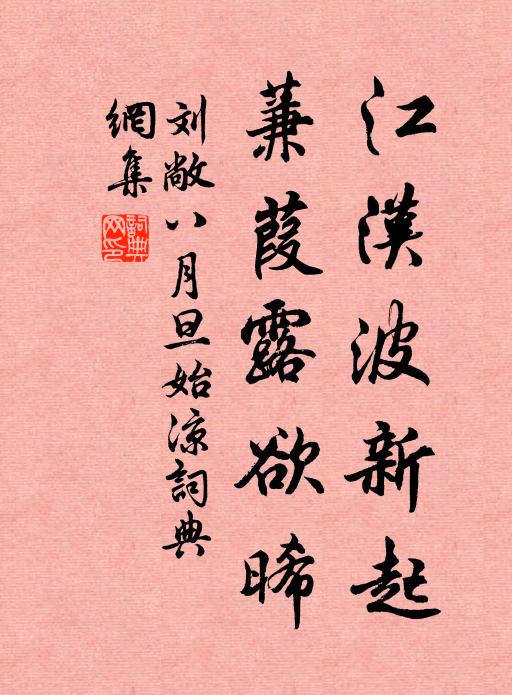 江漢波新起
蒹葭露欲晞
刘敞八月旦始涼詞典
網集
詞典
网印